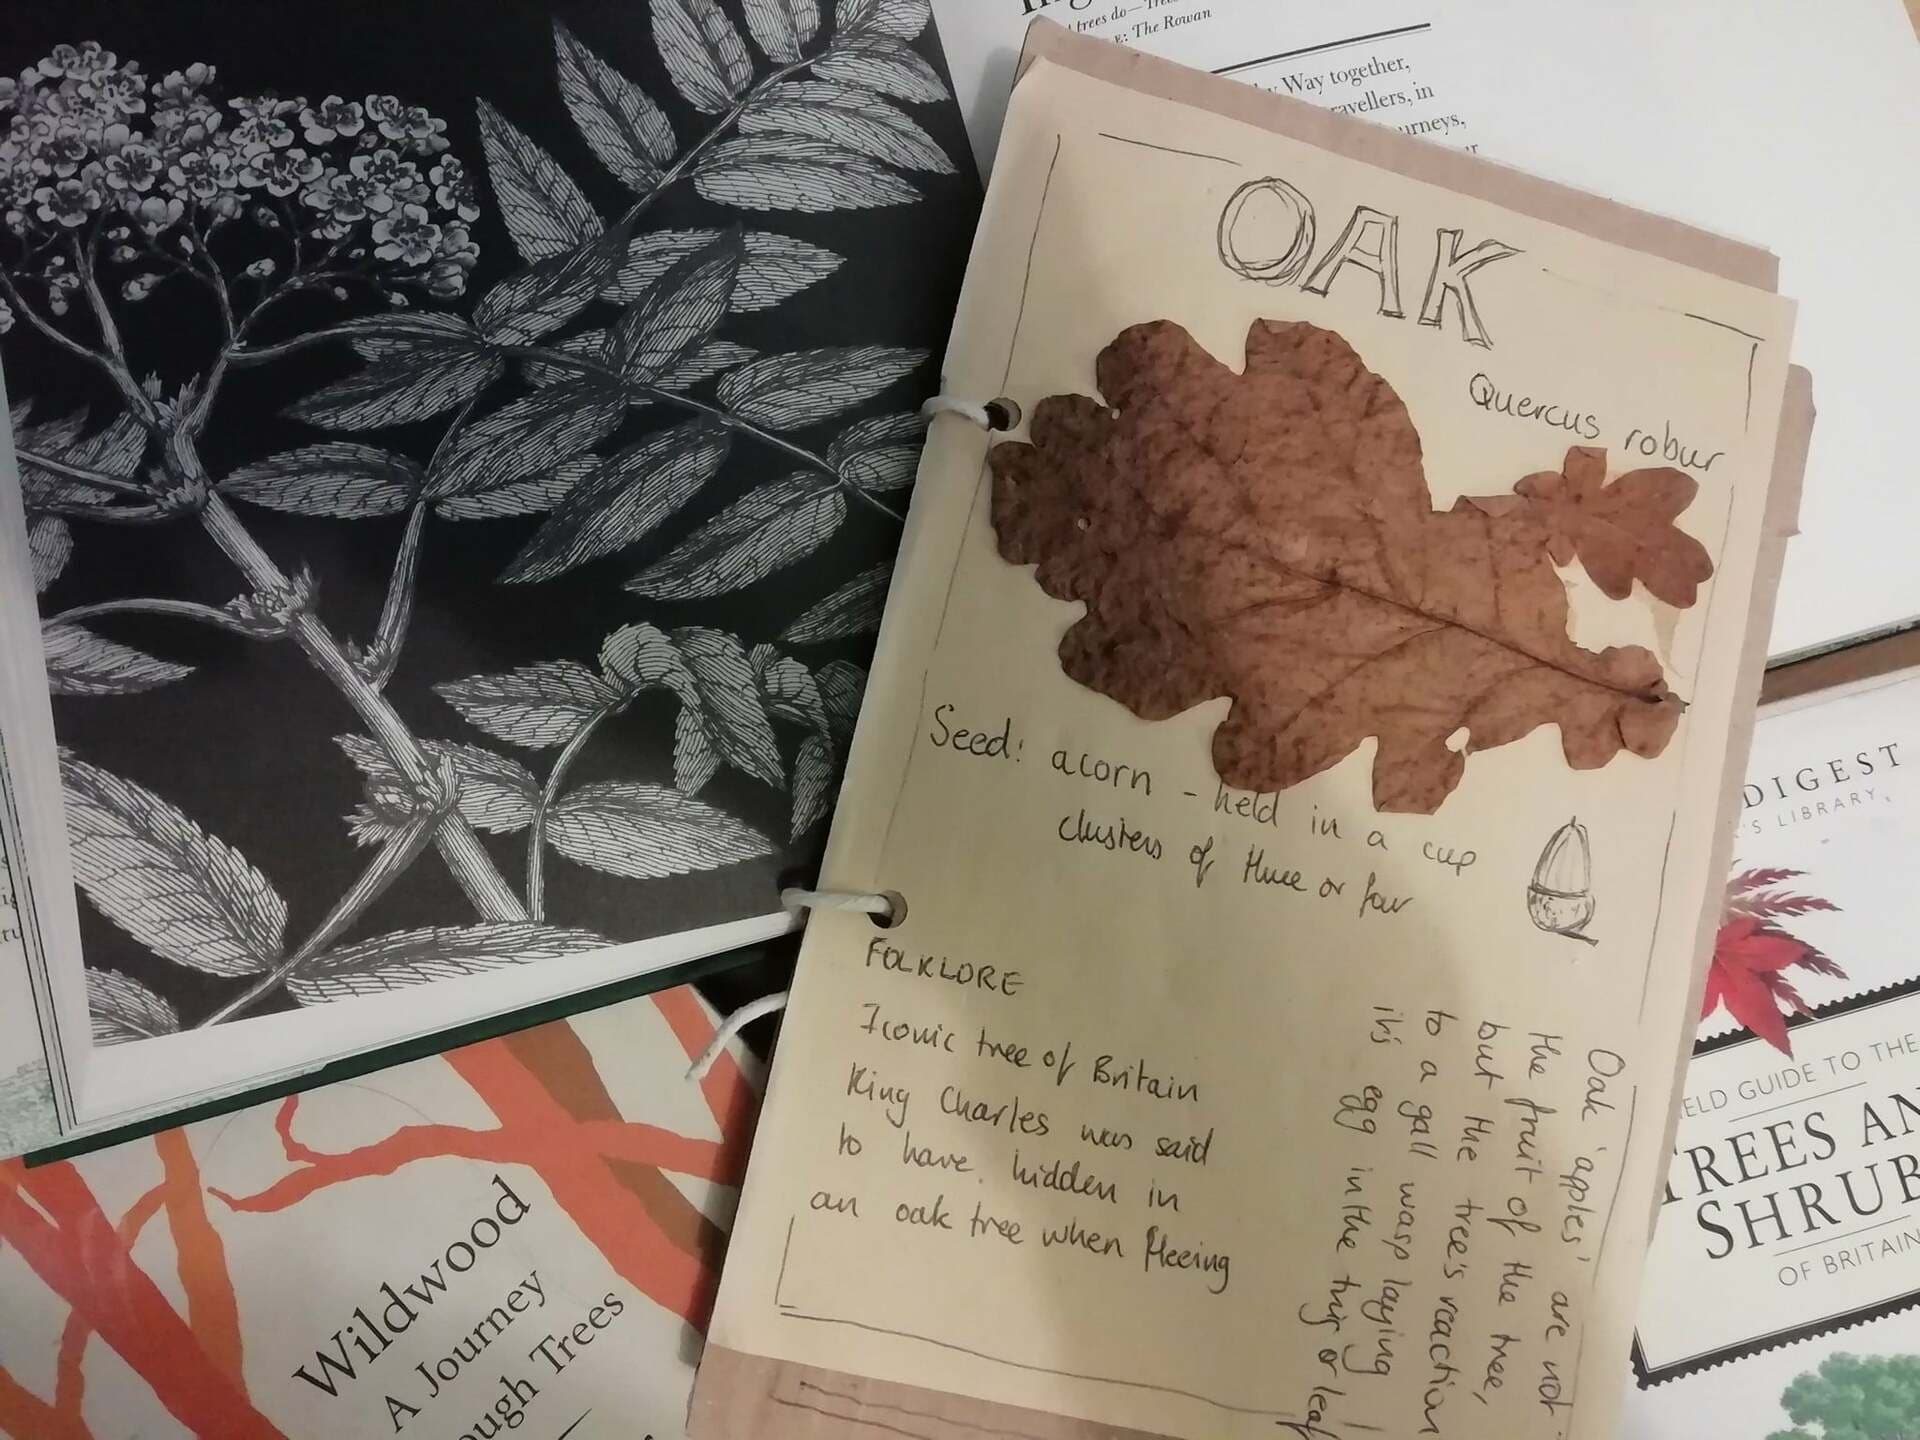 trees do—Trees
E: The Rowan
Way together,
ravellers, in
urneys,
OAK
Quercus robur
Seed: acorn - held in a cup
clusters of three or four
FOLKLORE
Iconic tree of Britain
King Charles was said
to have hidden in
an oak tree when fleeing
Oak 'apples' are not
the fruit of the tree,
but the tree's reaction
to a gall wasp laying
it's egg in the twig or leaf
Wildwood
A Journey
ough Trees
DIGEST
'S LIBRARY
ELD GUIDE TO THE
TREES AN
SHRUB
OF BRITAIN